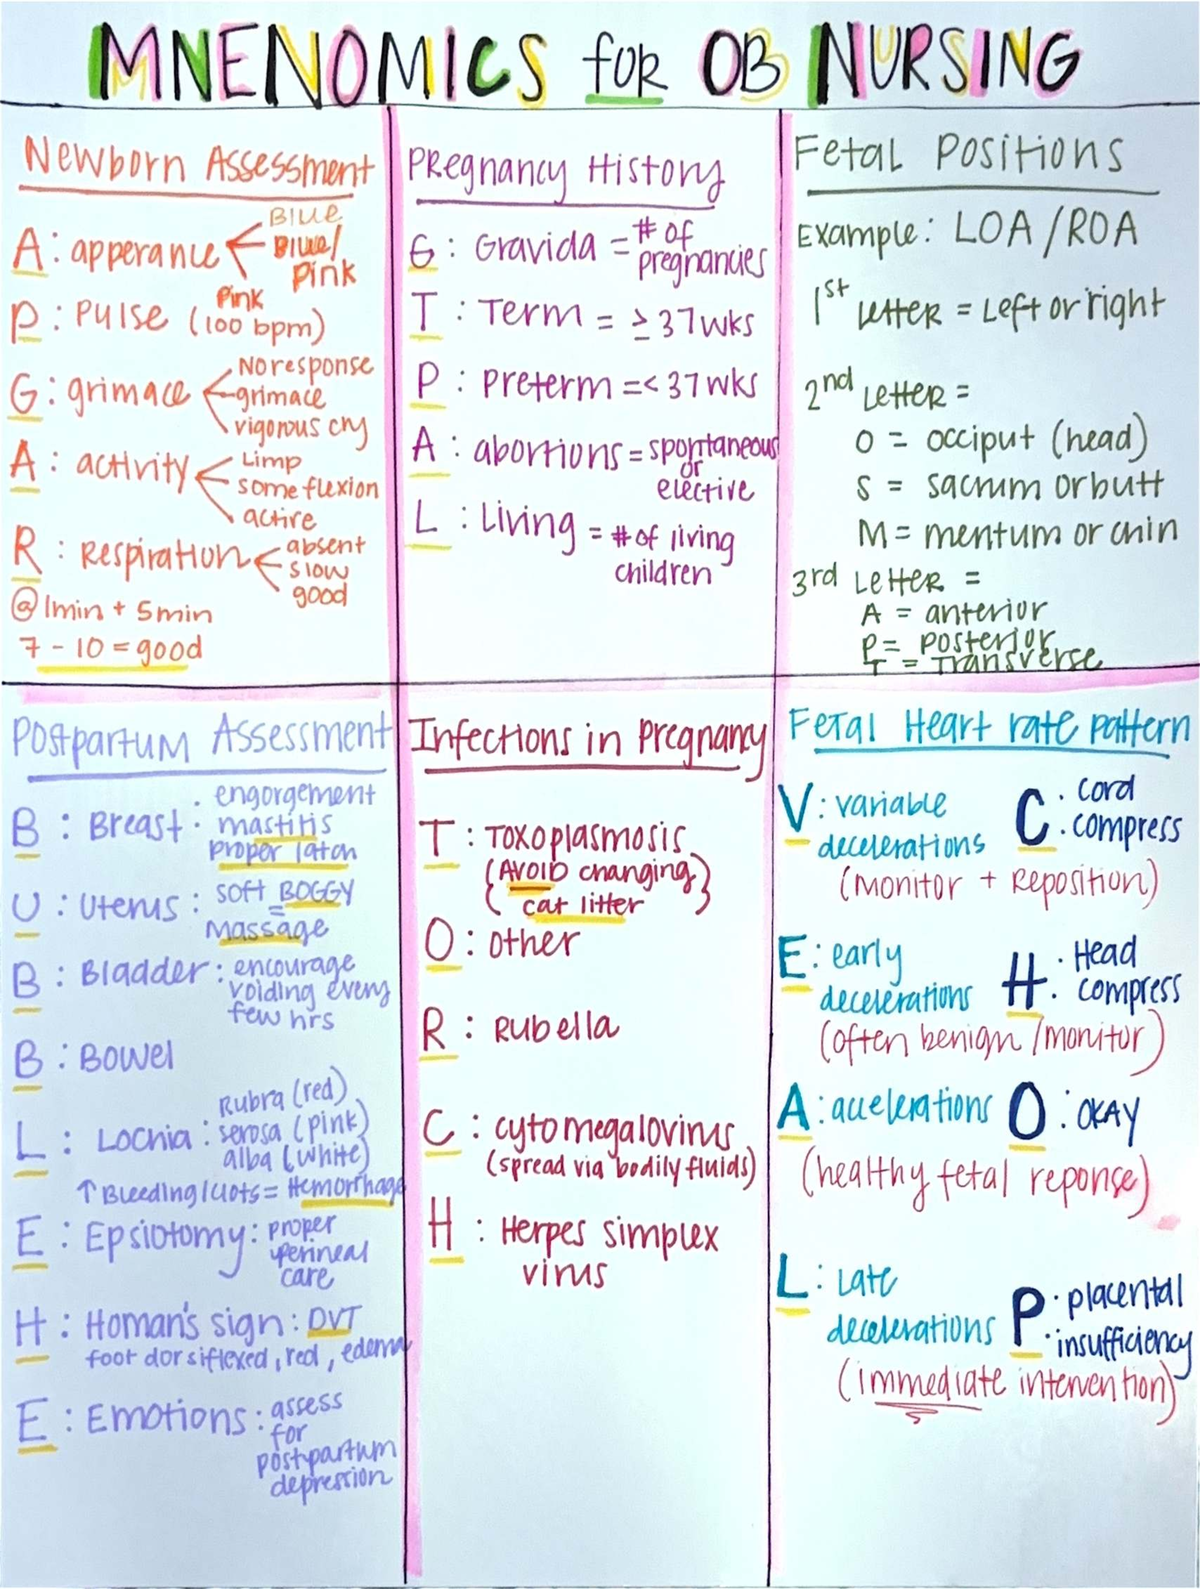 MNENOMICS for OB NURSING
Newborn Assessment
A: apperance
Blue
Blue/
Pink
Pink
P: Pulse (100 bpm)
G: grimace
No response
grimace
vigorous cry
A: activity
Limp
some flexion
active
R: Respiration
absent
slow
good
@ 1min + 5min
7 - 10 = good
Pregnancy History
G: Gravida = # of
pregnancies
T: Term = ≥ 37 wks
P: Preterm = < 37 wks
A: abortions = spontaneous
or
elective
L: Living = # of living
children
Fetal Positions
Example: LOA / ROA
1st Letter = Left or right
2nd Letter =
O = occiput (head)
S = sacrum or butt
M = mentum or chin
3rd Letter =
A = anterior
P = Posterior
T = Transverse
Postpartum Assessment
B: Breast
· engorgement
· mastitis
proper latch
U: Uterus: soft BOGGY
=
Massage
B: Bladder: encourage
voiding every
few hrs
B: Bowel
L: Lochia:
Rubra (red)
serosa (pink)
alba (white)
↑ Bleeding / Clots = Hemorrhage
E: Epsiotomy: proper
perineal
care
H: Homan's sign: DVT
foot dorsiflexed, red, edema
E: Emotions: assess
for
postpartum
depression
Infections in Pregnancy
T: Toxoplasmosis
(AVOID changing
cat litter)
O: Other
R: Rubella
C: cytomegalovirus
(spread via bodily fluids)
H: Herpes simplex
virus
Fetal Heart rate pattern
V: variable
decelerations
C · Cord
· compress
(monitor + Reposition)
E: early
decelerations
H · Head
· compress
(often benign / monitor)
A: accelerations O: OKAY
(healthy fetal reponse)
L: Late
decelerations
P · placental
· insufficiency
(immediate intervention)